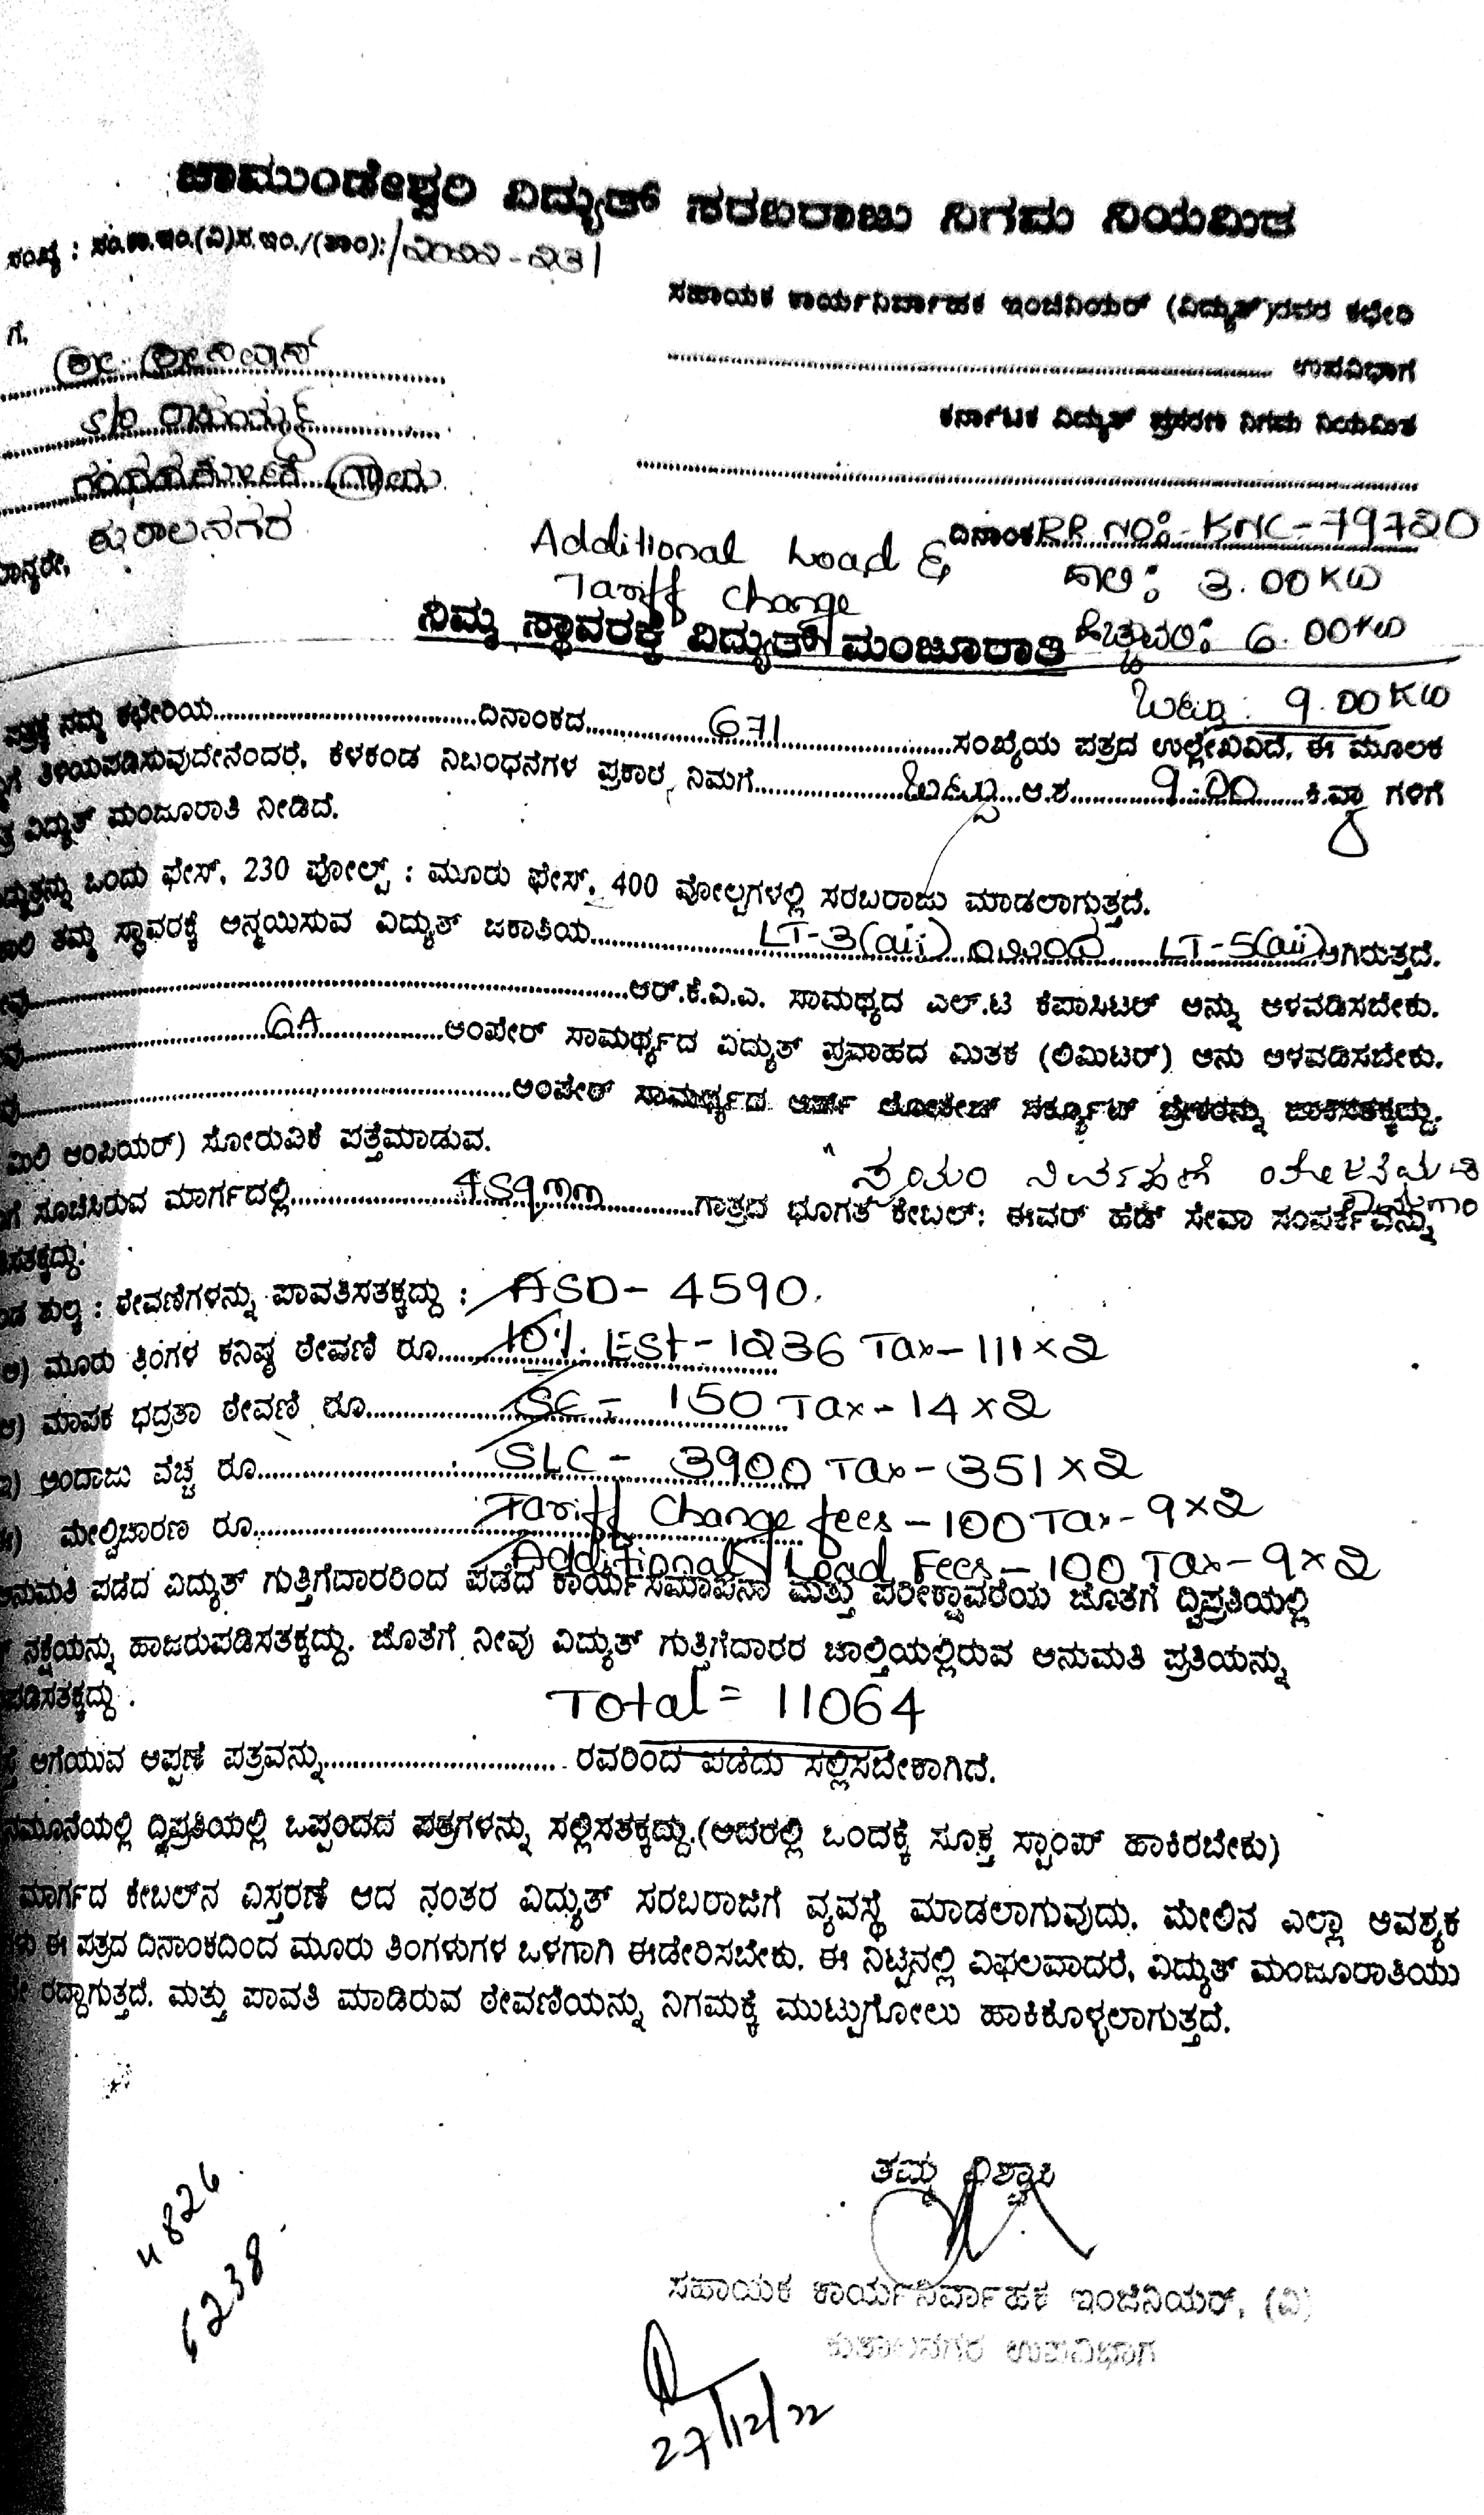 ಚಾಮುಂಡೇಶ್ವರಿ ವಿದ್ಯುತ್ ಸರಬರಾಜು ನಿಗಮ ನಿಯಮಿತ
ಸಂಖ್ಯೆ : ಸಂ.ಕಾ.ಇಂ.(ವಿ)ಸ.ಇಂ./(ತಾಂ):/೨೦೨೨-೨೩/
ಸಹಾಯಕ ಕಾರ್ಯನಿರ್ವಾಹಕ ಇಂಜಿನಿಯರ್ (ವಿದ್ಯುತ್)ರವರ ಕಛೇರಿ
ಗೆ,
ಶ್ರೀ ಶ್ರೀನಿವಾಸ್
ಉಪವಿಭಾಗ
S/o ರಾಮಯ್ಯ
ಕರ್ನಾಟಕ ವಿದ್ಯುತ್ ಪ್ರಸರಣ ನಿಗಮ ನಿಯಮಿತ
ಗಂಧದಕೋಟೆ ಗ್ರಾಮ
ಕುಶಾಲನಗರ
ಮಾನ್ಯರೇ,
Additional Load &
ದಿನಾಂಕ RR NO:- KNC-79720
Tariff change
ಹಾಲಿ: 3.00KW
ನಿಮ್ಮ ಸ್ಥಾವರಕ್ಕೆ ವಿದ್ಯುತ್ ಮಂಜೂರಾತಿ
ಹೆಚ್ಚುವರಿ: 6.00KW
ಒಟ್ಟು: 9.00KW
ಪತ್ರಕ್ಕೆ ನಮ್ಮ ಕಛೇರಿಯ..........ದಿನಾಂಕದ..........671..........ಸಂಖ್ಯೆಯ ಪತ್ರದ ಉಲ್ಲೇಖವಿದೆ. ಈ ಮೂಲಕ
ತಿಳಿಯಪಡಿಸುವುದೇನೆಂದರೆ, ಕೆಳಕಂಡ ನಿಬಂಧನೆಗಳ ಪ್ರಕಾರ, ನಿಮಗೆ..........ಒಟ್ಟು...ಅ.ಶ..........9.00..........ಕಿ.ವ್ಯಾ ಗಳಿಗೆ
ವಿದ್ಯುತ್ ಮಂಜೂರಾತಿ ನೀಡಿದೆ.
ಒಂದು ಫೇಸ್, 230 ವೋಲ್ಟ್ : ಮೂರು ಫೇಸ್, 400 ವೋಲ್ಟಗಳಲ್ಲಿ ಸರಬರಾಜು ಮಾಡಲಾಗುತ್ತದೆ.
ತಮ್ಮ ಸ್ಥಾವರಕ್ಕೆ ಅನ್ವಯಿಸುವ ವಿದ್ಯುತ್ ಜಕಾತಿಯ..........LT-3(aii) ಇಂದ LT-5(aii) ಆಗಿರುತ್ತದೆ.
..........ಆರ್.ಕೆ.ವಿ.ಎ. ಸಾಮಥ್ಯದ ಎಲ್.ಟಿ ಕೆಪಾಸಿಟರ್ ಅನ್ನು ಅಳವಡಿಸಬೇಕು.
..........6A..........ಅಂಪೇರ್ ಸಾಮರ್ಥ್ಯದ ವಿದ್ಯುತ್ ಪ್ರವಾಹದ ಮಿತಕ (ಲಿಮಿಟರ್) ಅನು ಅಳವಡಿಸಬೇಕು.
..........ಅಂಪೇರ್ ಸಾಮರ್ಥ್ಯದ ಅರ್ಥ್ ಲೀಕೇಜ್ ಸರ್ಕ್ಯೂಟ್ ಬ್ರೇಕರನ್ನು
ಮಿಲಿ ಆಂಪಿಯರ್) ಸೋರುವಿಕೆ ಪತ್ತೆಮಾಡುವ.
" ಸ್ವಯಂ ನಿರ್ವಹಣೆ
ಸೂಚಿಸಿರುವ ಮಾರ್ಗದಲ್ಲಿ..........4sqmm..........ಗಾತ್ರದ ಭೂಗತ ಕೇಬಲ್: ಈವರ್ ಹೆಡ್ ಸೇವಾ ಸಂಪರ್ಕವನ್ನು
ಶುಲ್ಕ : ಠೇವಣಿಗಳನ್ನು ಪಾವತಿಸತಕ್ಕದ್ದು : ASD- 4590.
ಅ) ಮೂರು ತಿಂಗಳ ಕನಿಷ್ಠ ಠೇವಣಿ ರೂ..........10%. Est- 1236 Tax-111x2
ಆ) ಮಾಪಕ ಭದ್ರತಾ ಠೇವಣಿ ರೂ..........SC - 150 Tax-14x2
ಇ) ಅಂದಾಜು ವೆಚ್ಚ ರೂ..........SLC - 3900 Tax-351x2
ಮೇಲ್ವಿಚಾರಣ ರೂ..........Tariff Change fees - 100 Tax-9x2
Additional Load Fees - 100 Tax-9x2
ಅನುಮತಿ ಪಡೆದ ವಿದ್ಯುತ್ ಗುತ್ತಿಗೆದಾರರಿಂದ ಪಡೆದ ಕಾರ್ಯಸಮಾಪನಾ ಮತ್ತು ಪರೀಕ್ಷಾವರೆಯ ಜೊತೆಗೆ ದ್ವಿಪ್ರತಿಯಲ್ಲಿ
ನಕ್ಷೆಯನ್ನು ಹಾಜರುಪಡಿಸತಕ್ಕದ್ದು. ಜೊತೆಗೆ ನೀವು ವಿದ್ಯುತ್ ಗುತ್ತಿಗೆದಾರರ ಚಾಲ್ತಿಯಲ್ಲಿರುವ ಅನುಮತಿ ಪ್ರತಿಯನ್ನು
Total = 11064
ಅಗೆಯುವ ಅಪ್ಪಣೆ ಪತ್ರವನ್ನು..........ರವರಿಂದ ಪಡೆದು ಸಲ್ಲಿಸಬೇಕಾಗಿದೆ.
ನಮೂನೆಯಲ್ಲಿ ದ್ವಿಪ್ರತಿಯಲ್ಲಿ ಒಪ್ಪಂದದ ಪತ್ರಗಳನ್ನು ಸಲ್ಲಿಸತಕ್ಕದ್ದು.(ಅದರಲ್ಲಿ ಒಂದಕ್ಕೆ ಸೂಕ್ತ ಸ್ಟಾಂಪ್ ಹಾಕಿರಬೇಕು)
ಮಾರ್ಗದ ಕೇಬಲ್‌ನ ವಿಸ್ತರಣೆ ಆದ ನಂತರ ವಿದ್ಯುತ್ ಸರಬರಾಜಿಗೆ ವ್ಯವಸ್ಥೆ ಮಾಡಲಾಗುವುದು. ಮೇಲಿನ ಎಲ್ಲಾ ಅವಶ್ಯಕ
ಈ ಪತ್ರದ ದಿನಾಂಕದಿಂದ ಮೂರು ತಿಂಗಳುಗಳ ಒಳಗಾಗಿ ಈಡೇರಿಸಬೇಕು. ಈ ನಿಟ್ಟನಲ್ಲಿ ವಿಫಲವಾದರೆ, ವಿದ್ಯುತ್ ಮಂಜೂರಾತಿಯು
ರದ್ದಾಗುತ್ತದೆ. ಮತ್ತು ಪಾವತಿ ಮಾಡಿರುವ ಠೇವಣಿಯನ್ನು ನಿಗಮಕ್ಕೆ ಮುಟ್ಟುಗೋಲು ಹಾಕಿಕೊಳ್ಳಲಾಗುತ್ತದೆ.
4826
6238
ತಮ್ಮ ವಿಶ್ವಾಸಿ
ಸಹಾಯಕ ಕಾರ್ಯನಿರ್ವಾಹಕ ಇಂಜಿನಿಯರ್, (ವಿ)
ಕುಶಾಲನಗರ ಉಪವಿಭಾಗ
27/12/22